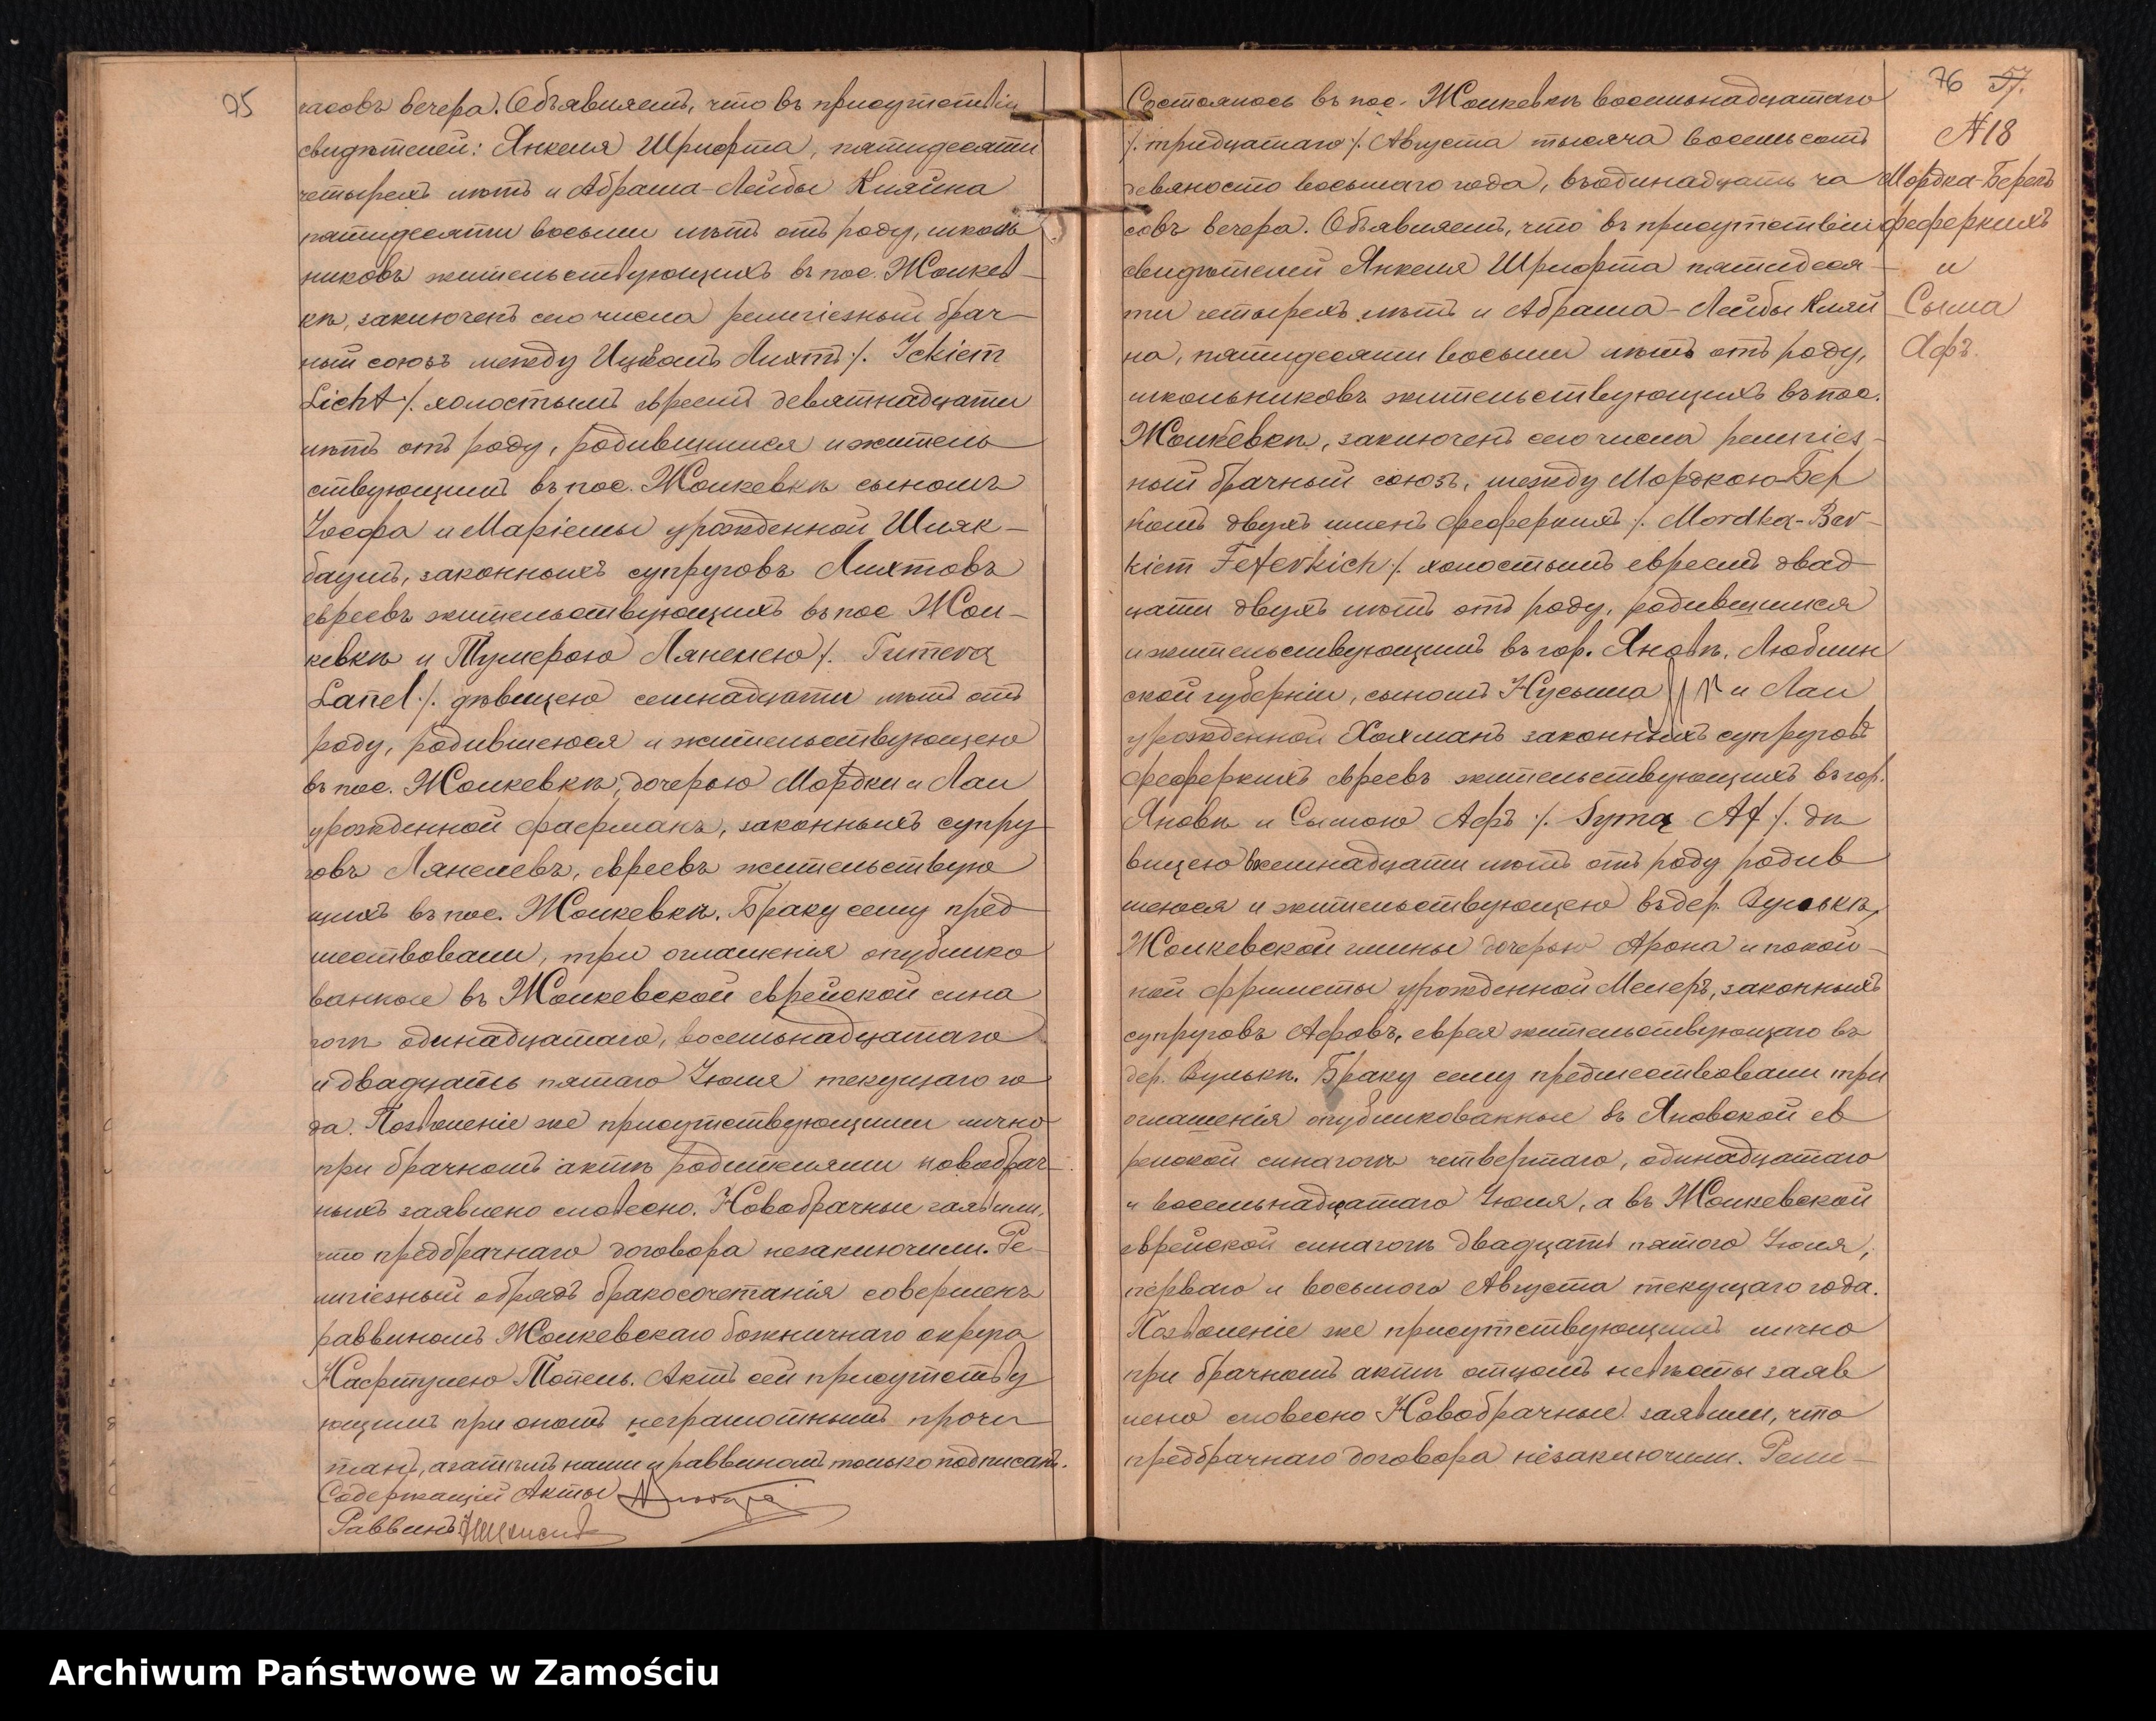 75
часовъ вечера. Объявляемъ, что въ присутствіи
свидѣтелей: Янкеля Шрифта, пятидесяти
четырехъ лѣтъ и Абрама-Лейбы Кляйна
пятидесяти восьми лѣтъ отъ роду, школь
никовъ жительствующихъ въ пос. Жолкев-
кѣ, заключенъ сего числа религіозный брач-
ный союзъ между Ицкомъ Лихтъ ./. Ickiem
Licht ./. холостымъ евреемъ девятнадцати
лѣтъ отъ роду, родившимся и житель
ствующимъ въ пос. Жолкевкѣ сыномъ
Іосфа и Маріемы урожденной Шляк-
баумъ, законныхъ супруговъ Лихтовъ
евреевъ жительствующихъ въ пос. Жол-
кевкѣ и Тумерою Лянелею ./. Tumerą
Lanel ./. дѣвицею семнадцати лѣтъ отъ
роду, родившеюся и жительствующею
въ пос. Жолкевкѣ, дочерью Мордки и Лаи
урожденной Фаерманъ, законныхъ супру
говъ Лянелевъ, евреевъ жительствую
щихъ въ пос. Жолкевкѣ. Браку сему пред
шествовали, три оглашенія опублико
ванные въ Жолкевской еврейской сина
гогѣ одинадцатаго, восемьнадцатаго
и двадцать пятаго Іюля текущаго го
да. Позволеніе же присутствующими лично
при брачномъ актѣ родителями новобрач-
ныхъ заявлено словесно. Новобрачные заявили,
что предбрачнаго договора незаключили. Ре-
лигіозный обрядъ бракосочетанія совершенъ
раввиномъ Жолкевскаго божничнаго округа
Нафтулею Топель. Актъ сей присутству
ющимъ при ономъ неграмотнымъ прочи
танъ, а затѣмъ нами и раввиномъ только подписанъ.
Содержащій Акты
Раввинъ
76 57.
№ 18
Мордка-Берекъ
Феферкихъ
и
Сыма
Афъ.
Состоялось въ пос. Жолкевкѣ восемьнадцатаго
./. тридцатаго ./. Августа тысяча восемьсотъ
девяносто восьмаго года, въ одинадцать ча
совъ вечера. Объявляемъ, что въ присутствіи
свидѣтелей Янкеля Шрифта пятидеся-
ти четырехъ лѣтъ и Абрама-Лейбы Кляй
на, пятидесяти восьми лѣтъ отъ роду,
школьниковъ жительствующихъ въ пос.
Жолкевкѣ, заключенъ сего числа религіоз-
ный брачный союзъ, между Мордкою-Бер
комъ двухъ именъ Феферкихъ ./. Mordka-Ber-
kiem Feferkich ./. холостымъ евреемъ двад
цати двухъ лѣтъ отъ роду, родившимся
и жительствующимъ въ гор. Яновѣ, Люблин
ской губерніи, сыномъ Нусыма и Лаи
урожденной Хохманъ законныхъ супруговъ
Феферкихъ евреевъ жительствующихъ въ гор.
Яновѣ и Сымою Афъ ./. Symą Af ./. дѣ
вицею восемнадцати лѣтъ отъ роду родив
шеюся и жительствующею въ дер. Вулькѣ,
Жолкевской гмины дочерью Арона и покой-
ной Фриметы урожденной Мелеръ, законныхъ
супруговъ Афовъ, еврея жительствующаго въ
дер. Вулькѣ. Браку сему предшествовали три
оглашенія опубликованные въ Яновской ев
рейской синагогѣ четвертаго, одинадцатаго
и восемьнадцатаго Іюля, а въ Жолкевской
еврейской синагогѣ двадцать пятого Іюля,
перваго и восьмого Августа текущаго года.
Позволеніе же присутствующимъ лично
при брачномъ актѣ отцомъ невѣсты заяв
лено словесно Новобрачные заявили, что
предбрачнаго договора незаключили. Рели-
Archiwum Państwowe w Zamościu